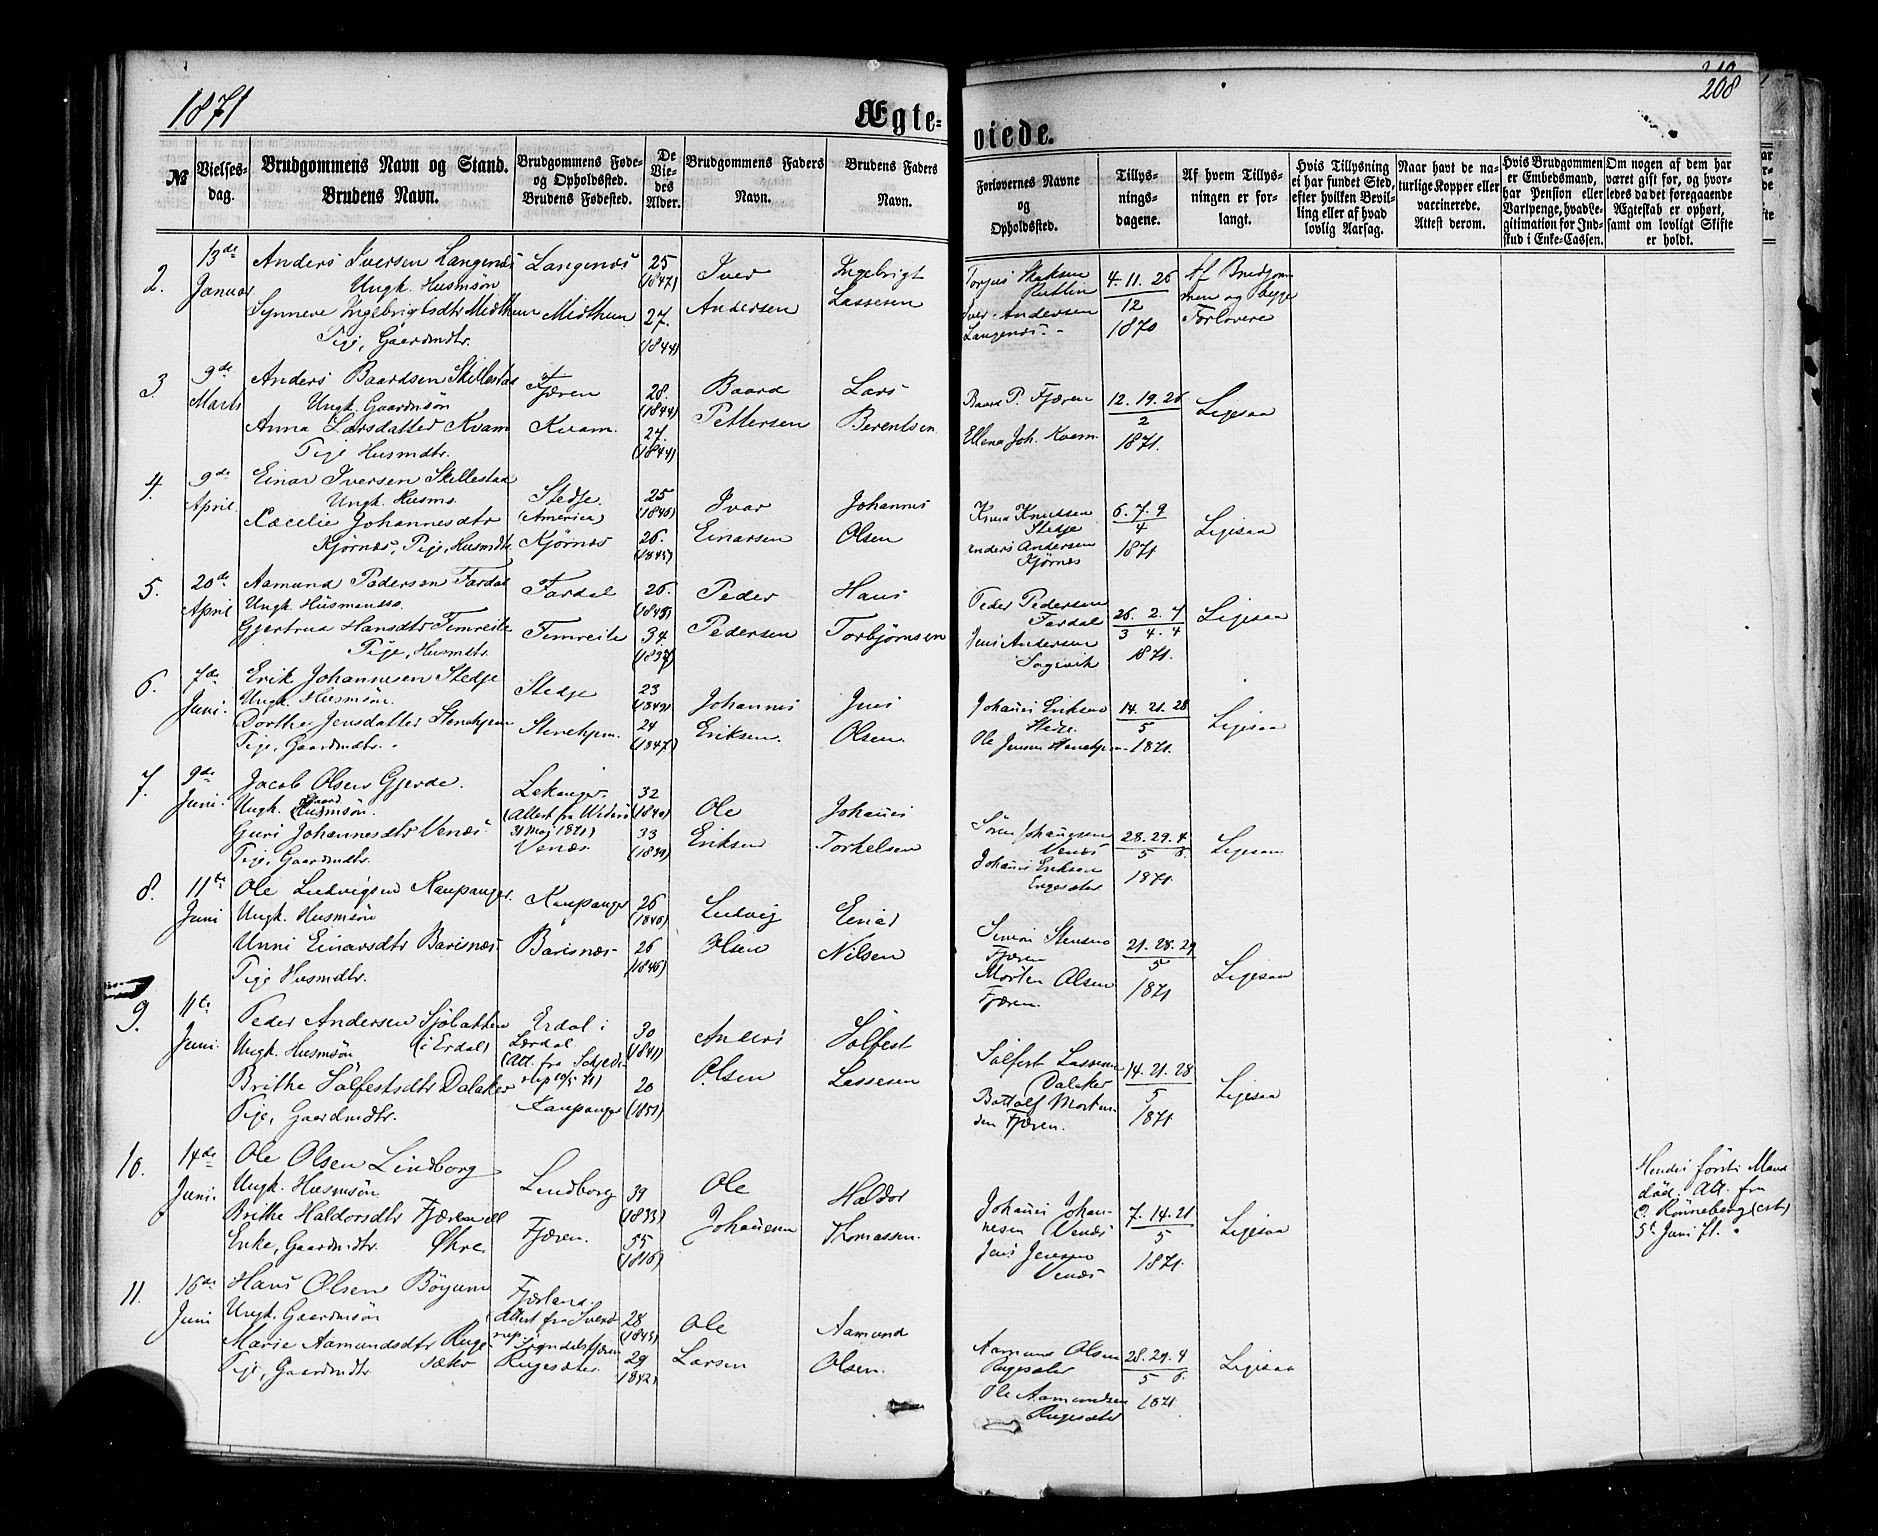 1871
208
Ægte-
viede.
№
Vielses-
dag.
Brudgommens Navn og Stand.
Brudens Navn.
Brudgommens Føde-
og Opholdssted.
Brudens Fødested.
De
Vie-
des
Alder.
Brudgommens Faders
Navn.
Brudens Faders
Navn.
Forlovernes Navne
og
Opholdssted.
Tillys-
nings-
dagene.
Af hvem Tillys-
ningen er for-
langt.
Hvis Tillysning
ei har fundet Sted,
efter hvilken Bevil-
ling eller af hvad
lovlig Aarsag.
Naar havt de na-
turlige Kopper eller
vaccinerede.
Attest derom.
Hvis Brudgommen
er Embedsmand,
har Pension eller
Vartpenge, hvad Le-
gitimation for Ind-
skud i Enke-Cassen.
Om nogen af dem har
været gift før, og hvor-
ledes da det foregaaende
Ægteskab er ophørt,
samt om lovligt Skifte
er holdt.
2.
13de
Januar
Anders Iversen Langenæs
Ungk. Husmsøn
Synneve Ingebrigtsdtr Midthun
Pige, Gaardmdtr.
Langenæs
Midthun
25
(1847)
27.
(1844)
Iver
Andersen
Ingebrigt
Lassesen
Torjus
Iver Andersen
Langenæs
4. 11. 26
12
1870
Af Brudgom
men og begge
Forlovere
3
9de
Marts
Anders Baardsen Skillestad
Ungk. Gaardmsøn
Anna Larsdatter Kvam
Pige Husmdtr.
Fjæren
Kvam.
28.
(1844)
27.
(1844)
Baard
Pettersen
Lars
Berentsen
Baard P. Fjæren
Joh. Kvam.
12. 19. 26
2
1871.
Ligesaa
4.
9de
April
Einar Iversen Skillestad
Ungk. Husms.
Cæcelie Johannesdtr
Kjørnæs, Pige, Husmdtr.
Stedje.
(America)
Kjørnæs
25
(1846)
26.
(1845)
Ivar
Einarsen
Johannes
Olsen
Knud Knudsen
Stedje
Anders Andersen
Kjørnæs
6. 7. 9
4
1871
Ligesaa
5.
20de
April
Aamund Pedersen Fardal
Ungk. Husmandss.
Gjertrud Hansdtr Fimreite
Pige, Husmdtr.
Fardal
Fimreite
26.
(1845)
34
(1837)
Peder
Pedersen
Hans
Torbjørnsen
Peder Pedersen
Fardal
Jens Andersen
Sogevik
26. 2. 7
3 4. 4
1871.
Ligesaa
6.
7de
Juni.
Erik Johannesen Stedje
Ungk. Husmsøn.
Dorthe Jensdatter Stenehjem
Pige, Gaardmdtr.
Stedje
Stenehjem.
23
(1849)
24
(1847)
Johannes
Eriksen.
Jens
Olsen.
Johanes Eriksen
Stedje.
Ole Jensen Stenehjem
14. 21. 28
5
1871.
Ligesaa
7.
9de
Juni.
Jacob Olsen Gjerde.
Ungk. Gaard
Husmsøn.
Guri Johannesdtr Venæs
Pige, Gaardmdtr.
Lekanger.
(Attest fra
31 Maj 1871)
Venæs.
32
(1840)
33
(1839)
Ole
Eriksen
Johanes
Torkelsen
Sören Johannesen
Venæs
Johanes Eriksen
Engesæter
28. 29. 4
5 6.
1871.
Ligesaa
8.
11te
Juni
Ole Ludvigsen Kaupanger.
Ungk. Husmsøn
Unni Einarsdtr Barsnæs
Pige Husmdtr.
Kaupanger
Barsnæs
26
(1846)
26
(1846)
Ludvig
Olsen
Einar
Nilsen
Simon
Fjæren
Morten Olsen
Fjæren.
21. 28. 29
5
1871
Ligesaa
9.
11te
Juni.
Peder Andersen Sjöbakken
Ungk. Husmsøn (i Erdal)
Brithe Sölfestsdtr Dalaker
Pige, Gaardmdtr.
Erdal i
Lærdal
(Att. fra
10/5 71)
Kaupanger
30
(1841)
20
(1851)
Anders
Olsen
Sölfest
Lassesen
Sölfest Lassesen
Dalaker
Bottolf Morten
sen Fjæren.
14. 21. 28
5
1871
Ligesaa
10.
14de
Juni.
Ole Olsen Lindborg
Ungk. Husmsøn
Brithe Haldorsdtr Fjæren ell
Enke, Gaardmdtr. Øhre
Lindborg
Fjæren.
39
(1833)
55
(1816)
Ole
Johanesen
Haldor
Thomassen.
Johanes Johan-
nesen Venæs
Jens Jensen
Venæs
7. 14. 21
5
1871.
Ligesaa
Hendes förste Mand
död. Att. fra
C. Rönneberg (cst)
5te Juni 71.
11.
16de
Juni
Hans Olsen Böyum
Ungk. Gaardmsøn
Marie Aamundsdtr Ruge-
Pige, Gaardmdtr. sæter
Fjærland.
(Attest fra
Sogndalsfjæren
Rugesæter.
28
(1843)
29
1842)
Ole
Larsen
Aamund
Olsen.
Aamund Olsen
Rugesæter
Ole Aamundsen
Rugesæter
28. 29. 4
5 6.
1871.
Ligesaa